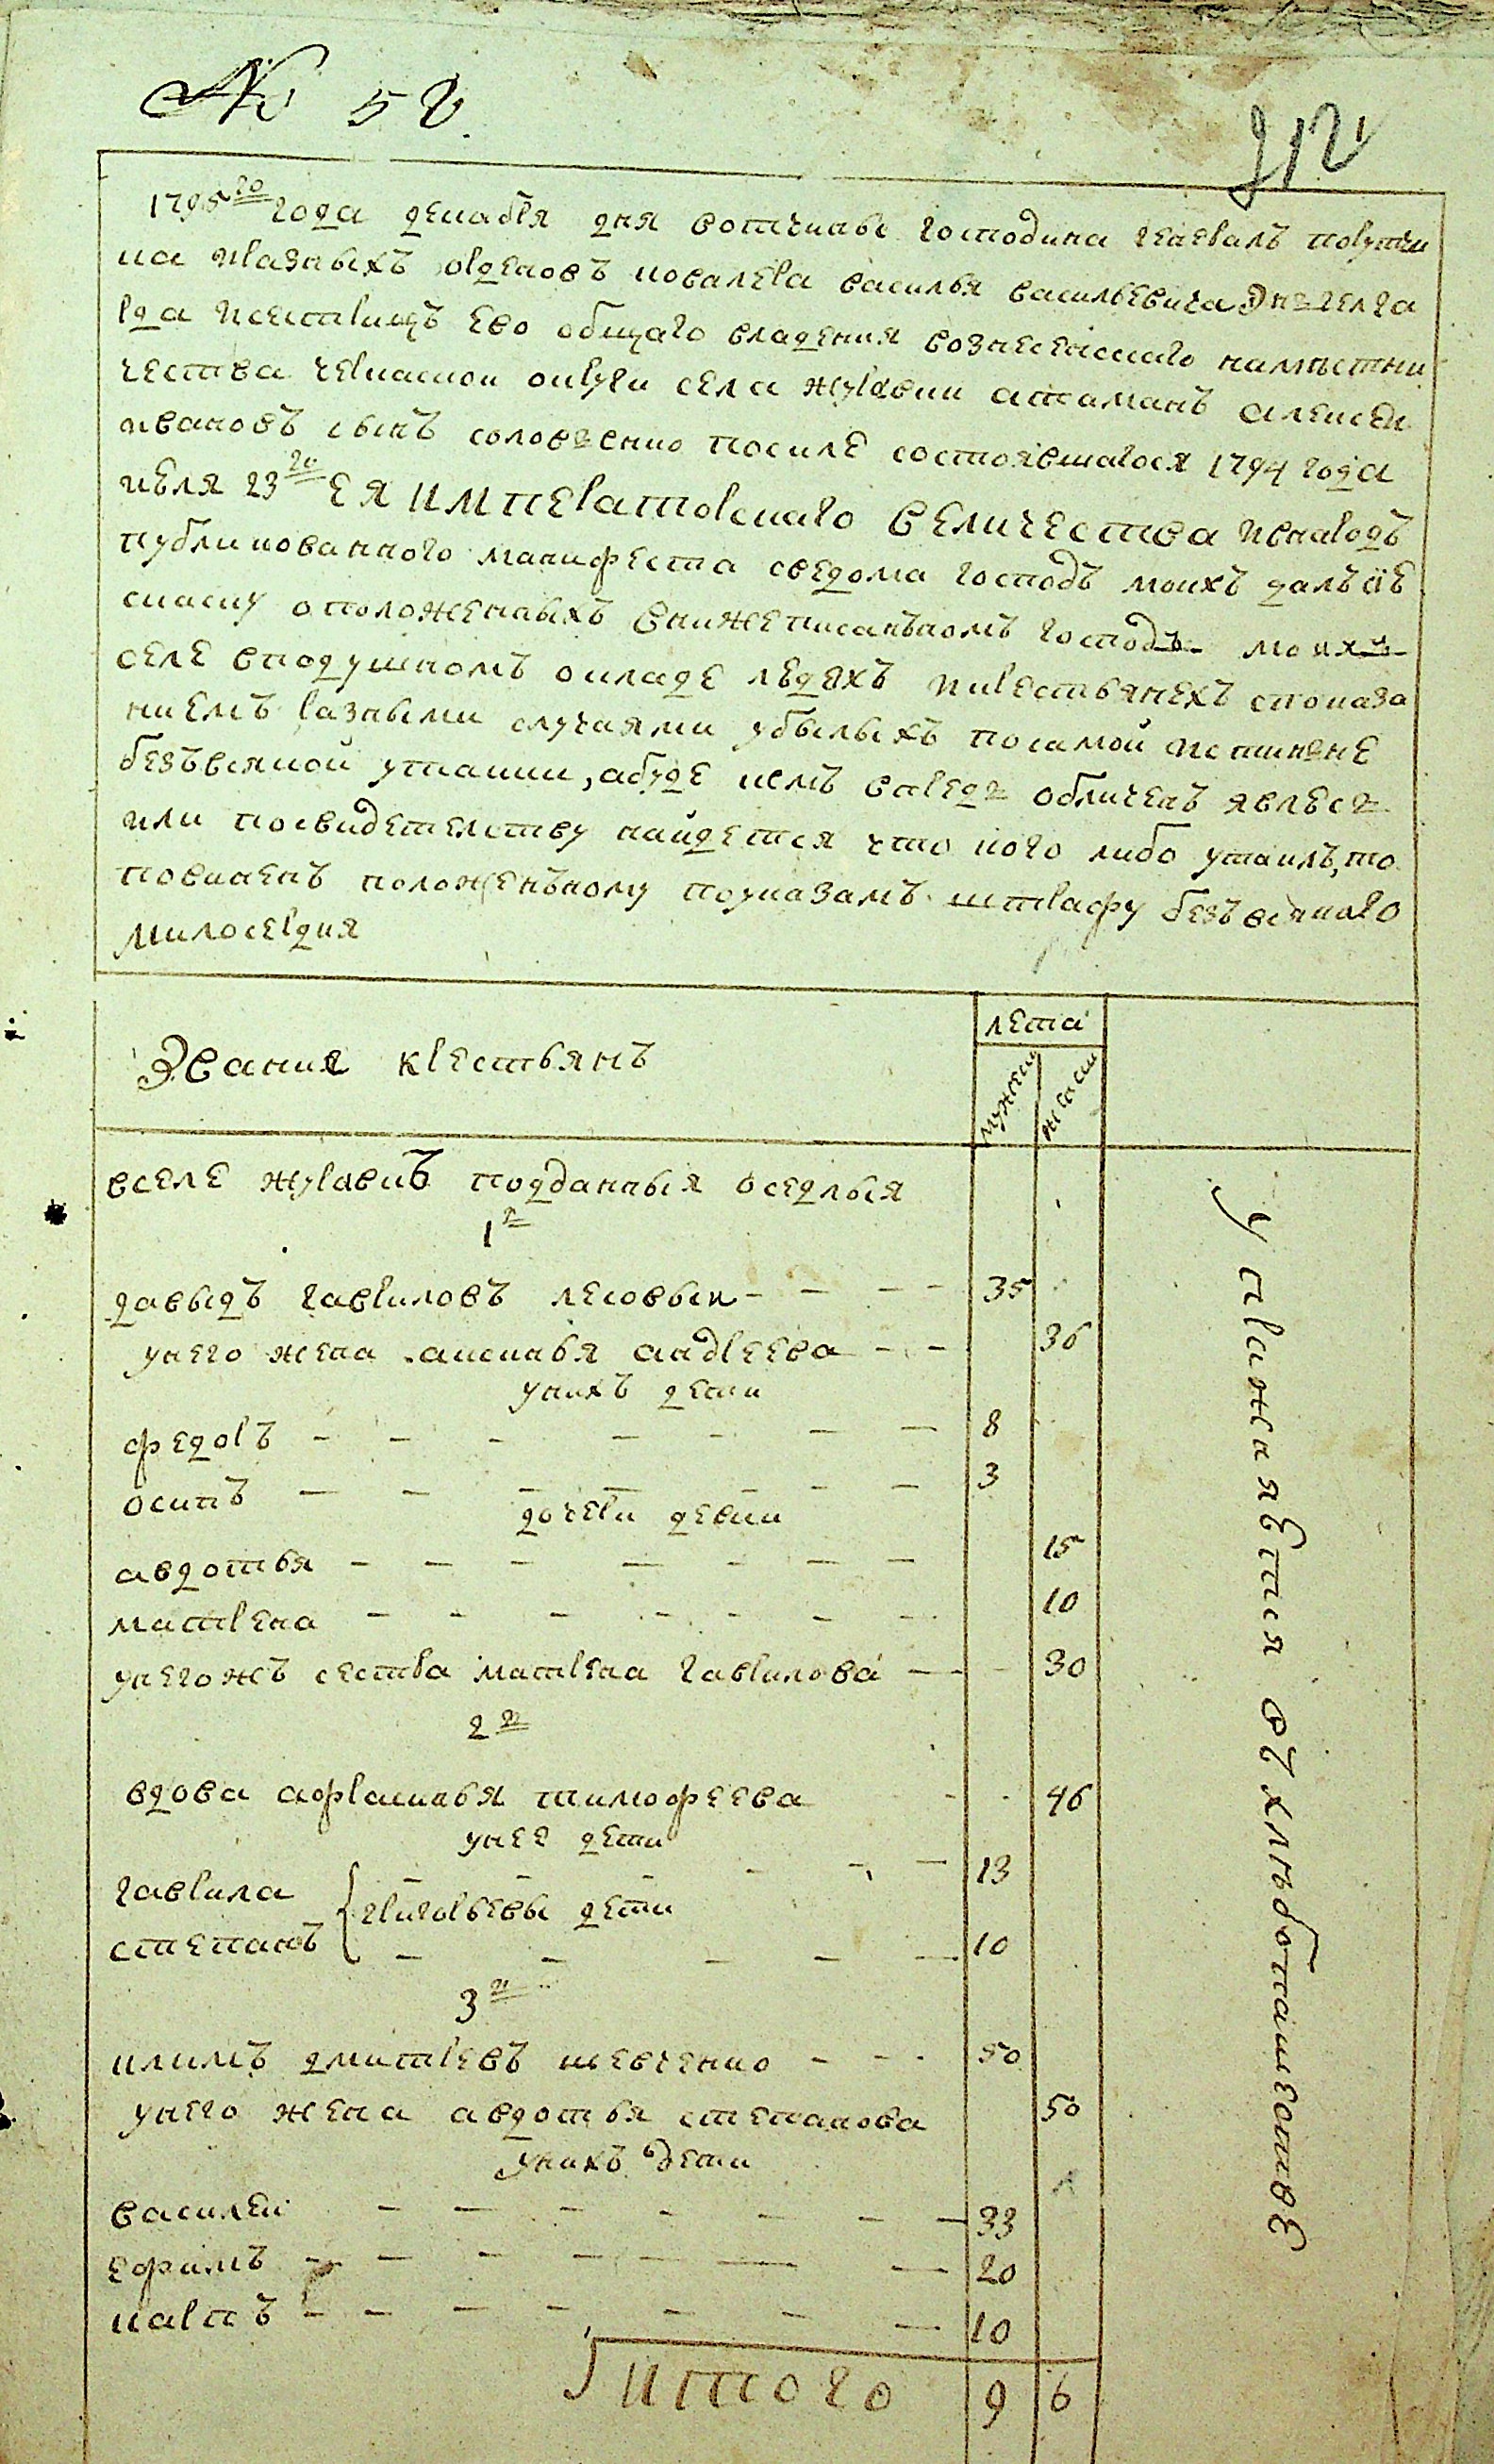 № 52
212
1795го года декабря дня вотчины господина генералъ поручи
ка и разныхъ орденовъ ковалера василья васильевича энгелга
рда и сестрицъ его общаго владения вознесенскаго наместни
чества черкаской округи села журавки атаманъ алексей
ивановъ сынъ соловъенко по силе состоявшагося 1794 года
июля 23го ЕЯ ИМПЕРАТОРСКАГО ВЕЛИЧЕСТВА и в народъ
публикованного манифеста с ведома господъ моихъ далъ сие
скаску о положенныхъ в нижеписанъномъ господъ моихъ
селе в подушномъ окладе людехъ и крестьянехъ с показа
ниемъ разными случаями убылыхъ по самой истинне
безъвсякой утайки, а буде кемъ впредь обличенъ явлюсь
или по свидетельству найдется что кого либо утаилъ, то
повиненъ положенъному по указамъ штрафу безъвсякого
милосердия
Звания крестьянъ
лета
мужск
женск
в селе журавкъ подданныя оседлыя
1й
давыдъ гавриловъ лесовык 35
у него жена аксинья андреева 36
у нихъ дети
федоръ 8
осипъ 3
дочери девки
авдотья 15
матрена 10
у него жъ сестра матрена гаврилова 30
2й
вдова афрасинья тимофеева 46
у нее дети
гаврила 13
григорьевы дети
степанъ 10
3й
климъ дмитревъ шевченко 50
у него жена авдотья степанова 50
у нихъ дети
василей 33
ефимъ 20
карпъ 10
итого 9 6
упражняются въ хлебопашестве